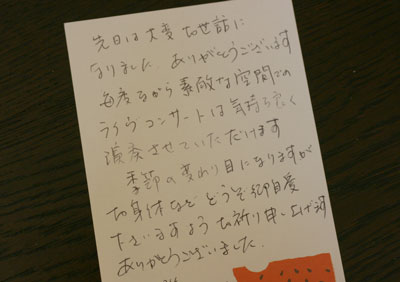 先日は大変お世話に
なりました。ありがとうございます
毎度ながら素敵な空間での
ライヴコンサートは気持ち良く
演奏させていただけます
季節の変わり目になりますが
お身体などどうぞ御自愛
下さいますようお祈り申し上げます
ありがとうございました。